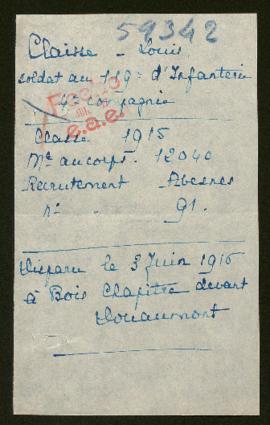 59342
Claisse - Louis
soldat au 119e d'Infanterie
4e compagnie
e.a.e.
Classe 1915
Mle au corps. 12040
Recrutement Avesnes
n° 91.
Disparu le 3 Juin 1916
à Bois Chapitre devant
Douaumont